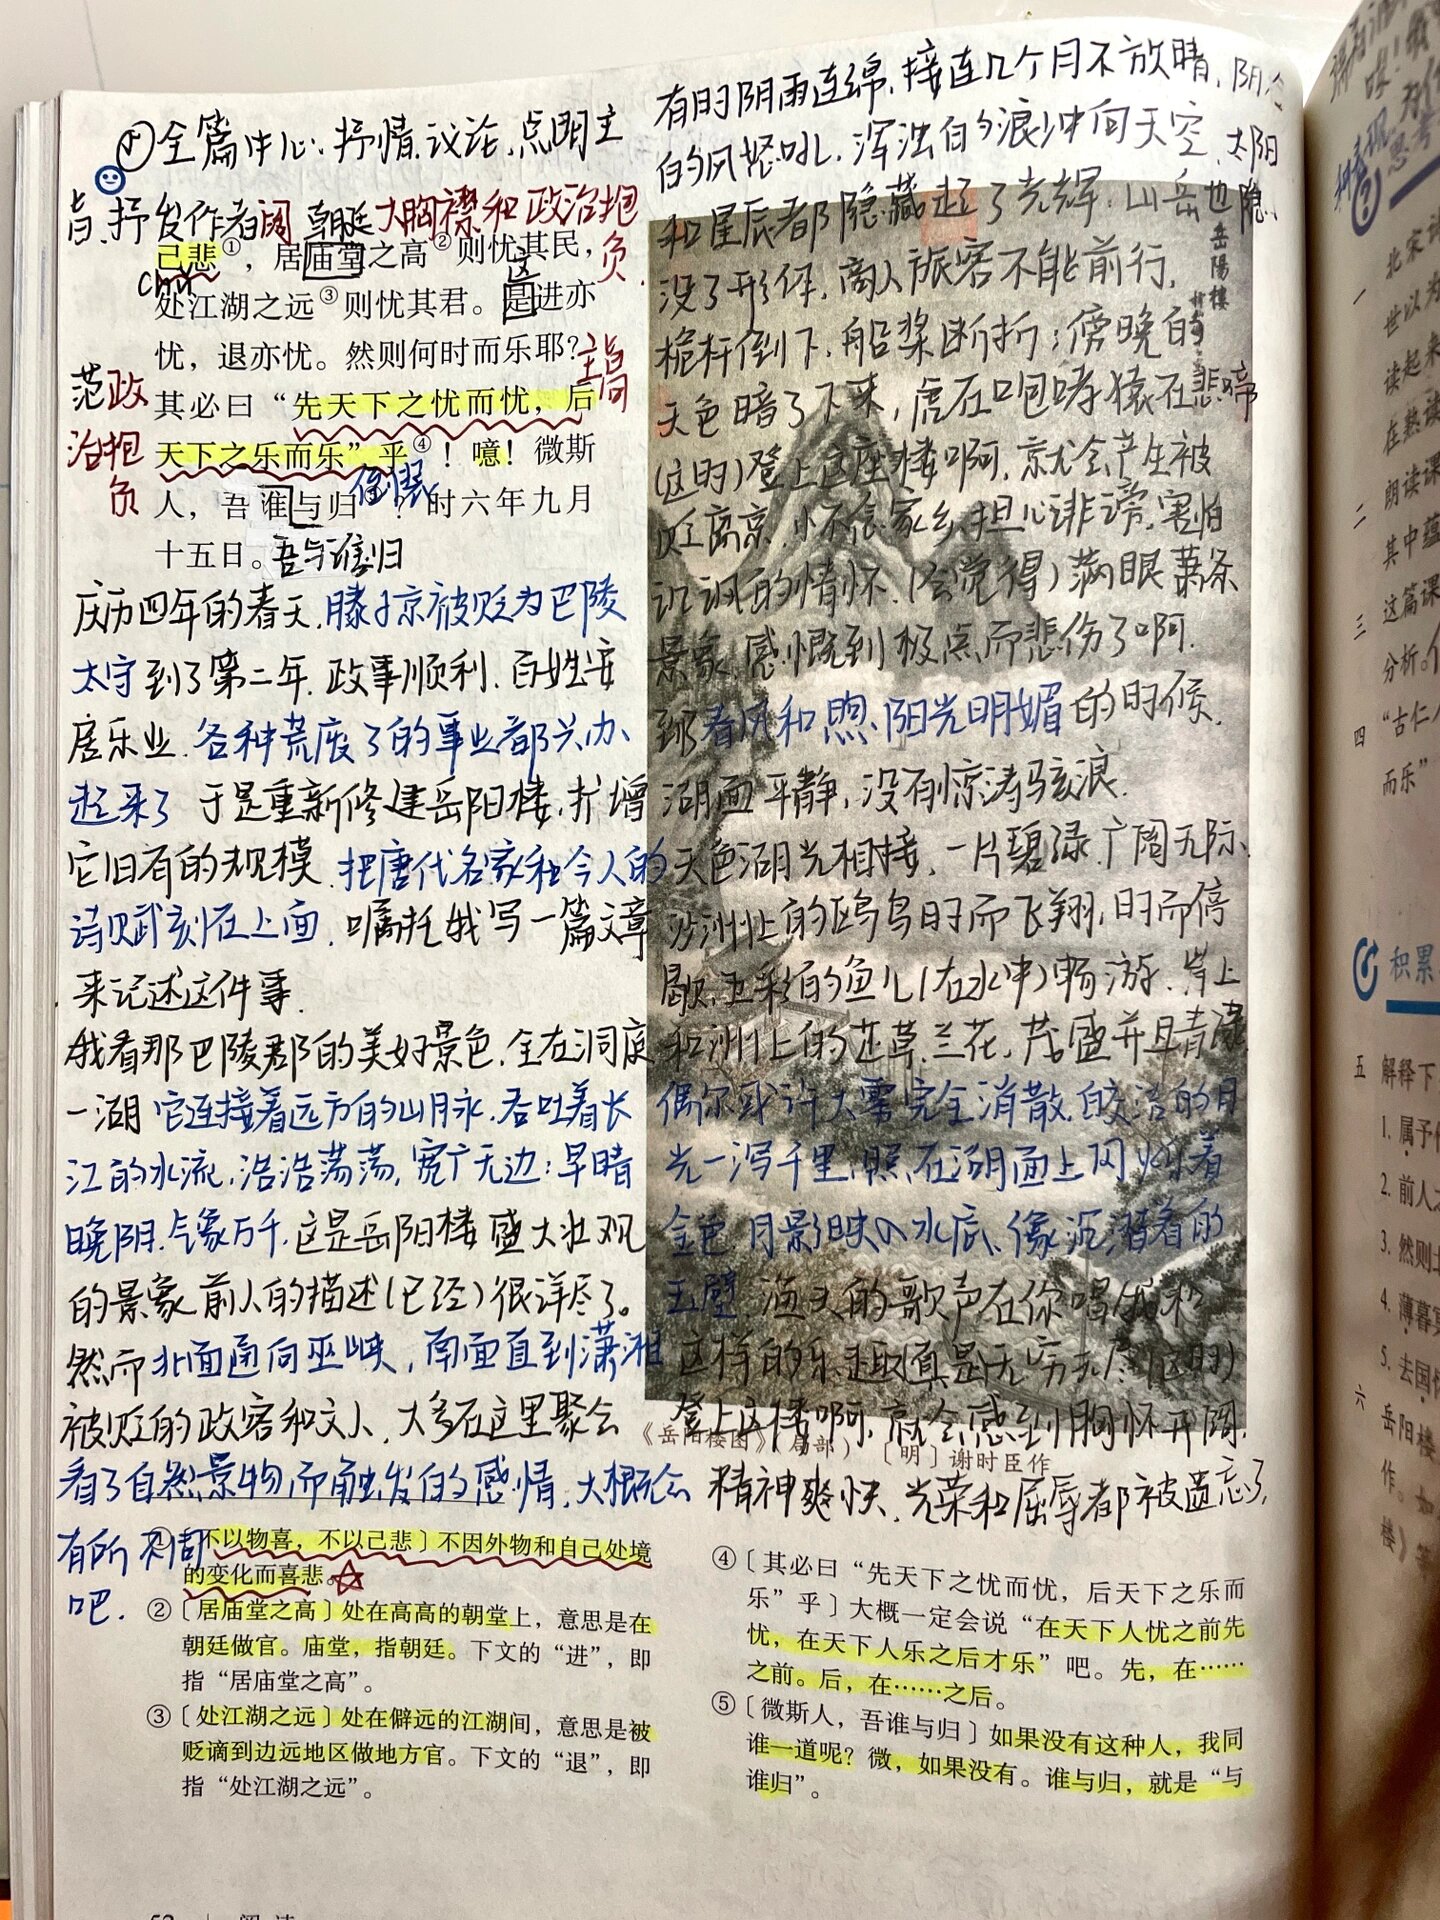 全篇中心:抒情,议论,点明主
旨,抒发作者阔大胸襟和政治抱负
朝廷
己悲①,居庙堂之高②则忧其民,
chǔ
这
处江湖之远③则忧其君。是进亦
忧,退亦忧。然则何时而乐耶?
主旨句
范政治抱负
其必曰“先天下之忧而忧,后
天下之乐而乐”乎④!噫!微斯
倒装
人,吾谁与归⑤?时六年九月
十五日。吾与谁归
庆历四年的春天,滕子京被贬为巴陵
太守到了第二年,政事顺利,百姓安
居乐业,各种荒废了的事业都兴办
起来了 于是重新修建岳阳楼,扩增
它旧有的规模,把唐代名家和今人的
诗赋刻在上面,嘱托我写一篇文章
来记述这件事.
我看那巴陵郡的美好景色,全在洞庭
一湖 它连接着远方的山脉,吞吐着长
江的水流,浩浩荡荡,宽广无边:早晴
晚阴,气象万千,这是岳阳楼盛大壮观
的景象 前人的描述(已经)很详尽了。
然而北面通向巫峡,南面直到潇湘
被贬的政客和文人,大多在这里聚会
看了自然景物而触发的感情,大概会
有所不同
吧.
有时阴雨连绵,接连几个月不放晴,阴冷
的风怒吼,浑浊的浪冲向天空,太阳
和星辰都隐藏起了光辉,山岳也隐
没了形体,商人旅客不能前行,
桅杆倒下,船桨断折;傍晚的
天色暗了下来,虎在咆哮猿在悲啼
(这时)登上这座楼啊,就会产生被
贬离京,怀念家乡,担心诽谤,害怕
讥讽的情怀,(会觉得)满眼萧条
景象,感慨到极点而悲伤了啊.
到了春风和煦,阳光明媚的时候,
湖面平静,没有惊涛骇浪.
天色湖光相接,一片碧绿,广阔无际,
沙洲上的鸥鸟时而飞翔,时而停
歇,五彩的鱼儿(在水中)畅游,岸上
和洲上的芷草,兰花,茂盛并且青绿
偶尔或许大雾完全消散,皎洁的月
光一泻千里,照在湖面上闪烁着
金色,月影映入水底,像沉潜着的
玉璧,渔夫的歌声在你唱我和
这样的乐趣真是无穷无尽(这时)
登上这楼啊,就会感到胸怀开阔,
精神爽快,光荣和屈辱都被遗忘了,
岳陽樓
《岳阳楼图》(局部) 〔明〕谢时臣作
①〔不以物喜,不以己悲〕不因外物和自己处境
的变化而喜悲。
②〔居庙堂之高〕处在高高的朝堂上,意思是在
朝廷做官。庙堂,指朝廷。下文的“进”,即
指“居庙堂之高”。
③〔处江湖之远〕处在僻远的江湖间,意思是被
贬谪到边远地区做地方官。下文的“退”,即
指“处江湖之远”。
④〔其必曰“先天下之忧而忧,后天下之乐而
乐”乎〕大概一定会说“在天下人忧之前先
忧,在天下人乐之后才乐”吧。先,在……
之前。后,在……之后。
⑤〔微斯人,吾谁与归〕如果没有这种人,我同
谁一道呢?微,如果没有。谁与归,就是“与
谁归”。
思考
一 北宋
世以为
读起来
在熟读
二 朗读课
其中蕴
三 这篇课
分析。
四 “古仁人
而乐”
积累
五 解释下
1. 属予
2. 前人
3. 然则北
4. 薄暮冥
5. 去国怀
六 岳阳楼
作。如
楼》等